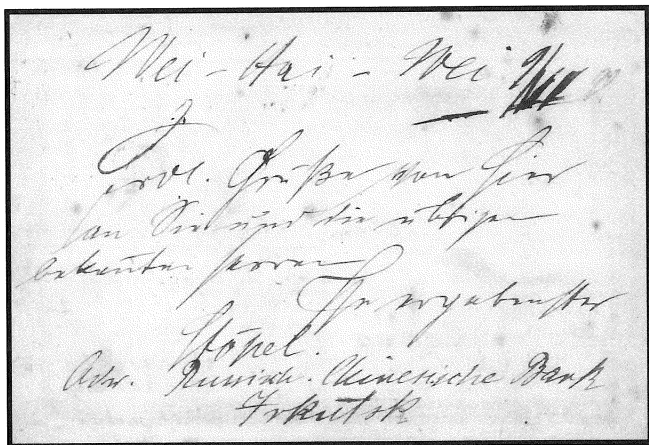 Wei-Hai-Wei
Frdl. Grüße von hier
an Sie und die übrigen
bekannten Herren
Ihr ergebenster
Stöpel.
Adr. Russisch. Chinesische Bank
Irkutsk